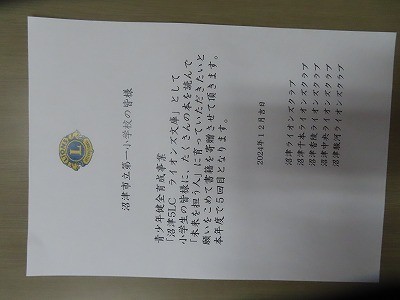 沼津市立第一小学校の皆様
青少年健全育成事業
「沼津5LC ライオンズ文庫」として
小学生の皆様に、たくさんの本を読んで
「未来を担う人」に育っていただきたいと
願いをこめて書籍を寄贈させて頂きます。
本年度で5回目となります。
2024年12月吉日
沼津ライオンズクラブ
沼津千本ライオンズクラブ
沼津香陵ライオンズクラブ
沼津中央ライオンズクラブ
沼津駿河ライオンズクラブ